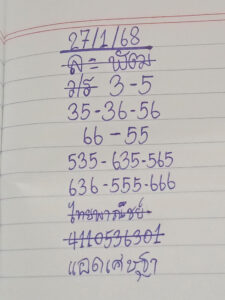 27/1/68
ล = พัฒม
ว/ร 3-5
35-36-56
66-55
535-635-565
636-555-666
ไทยพาณิชย์
4110536301
แอดเศรษฐา